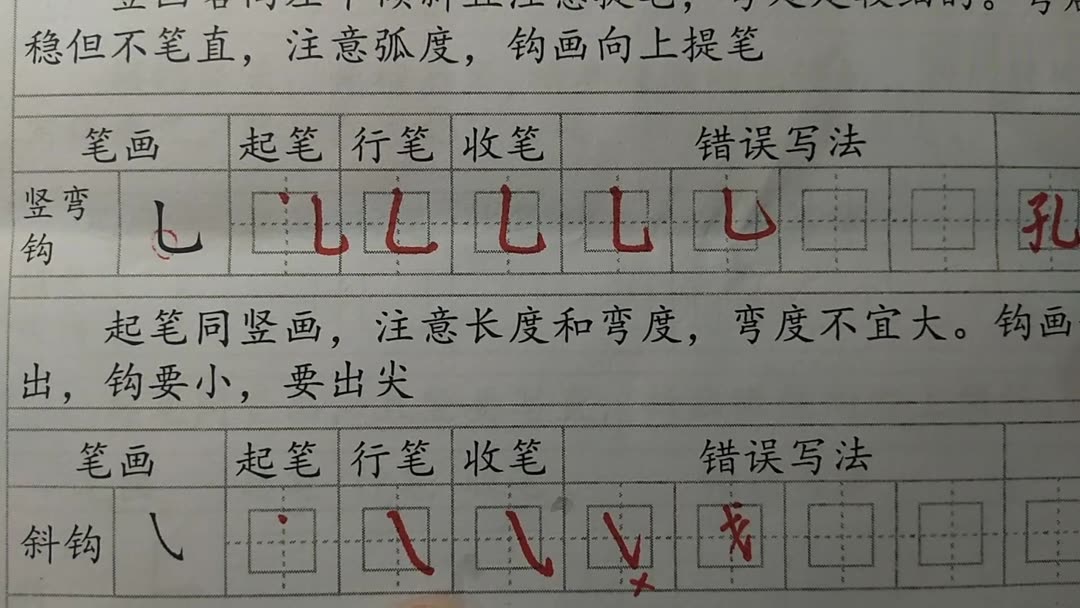 稳但不笔直，注意弧度，钩画向上提笔
笔画 起笔 行笔 收笔 错误写法
竖弯钩 孔
起笔同竖画，注意长度和弯度，弯度不宜大。钩画
出，钩要小，要出尖
笔画 起笔 行笔 收笔 错误写法
斜钩